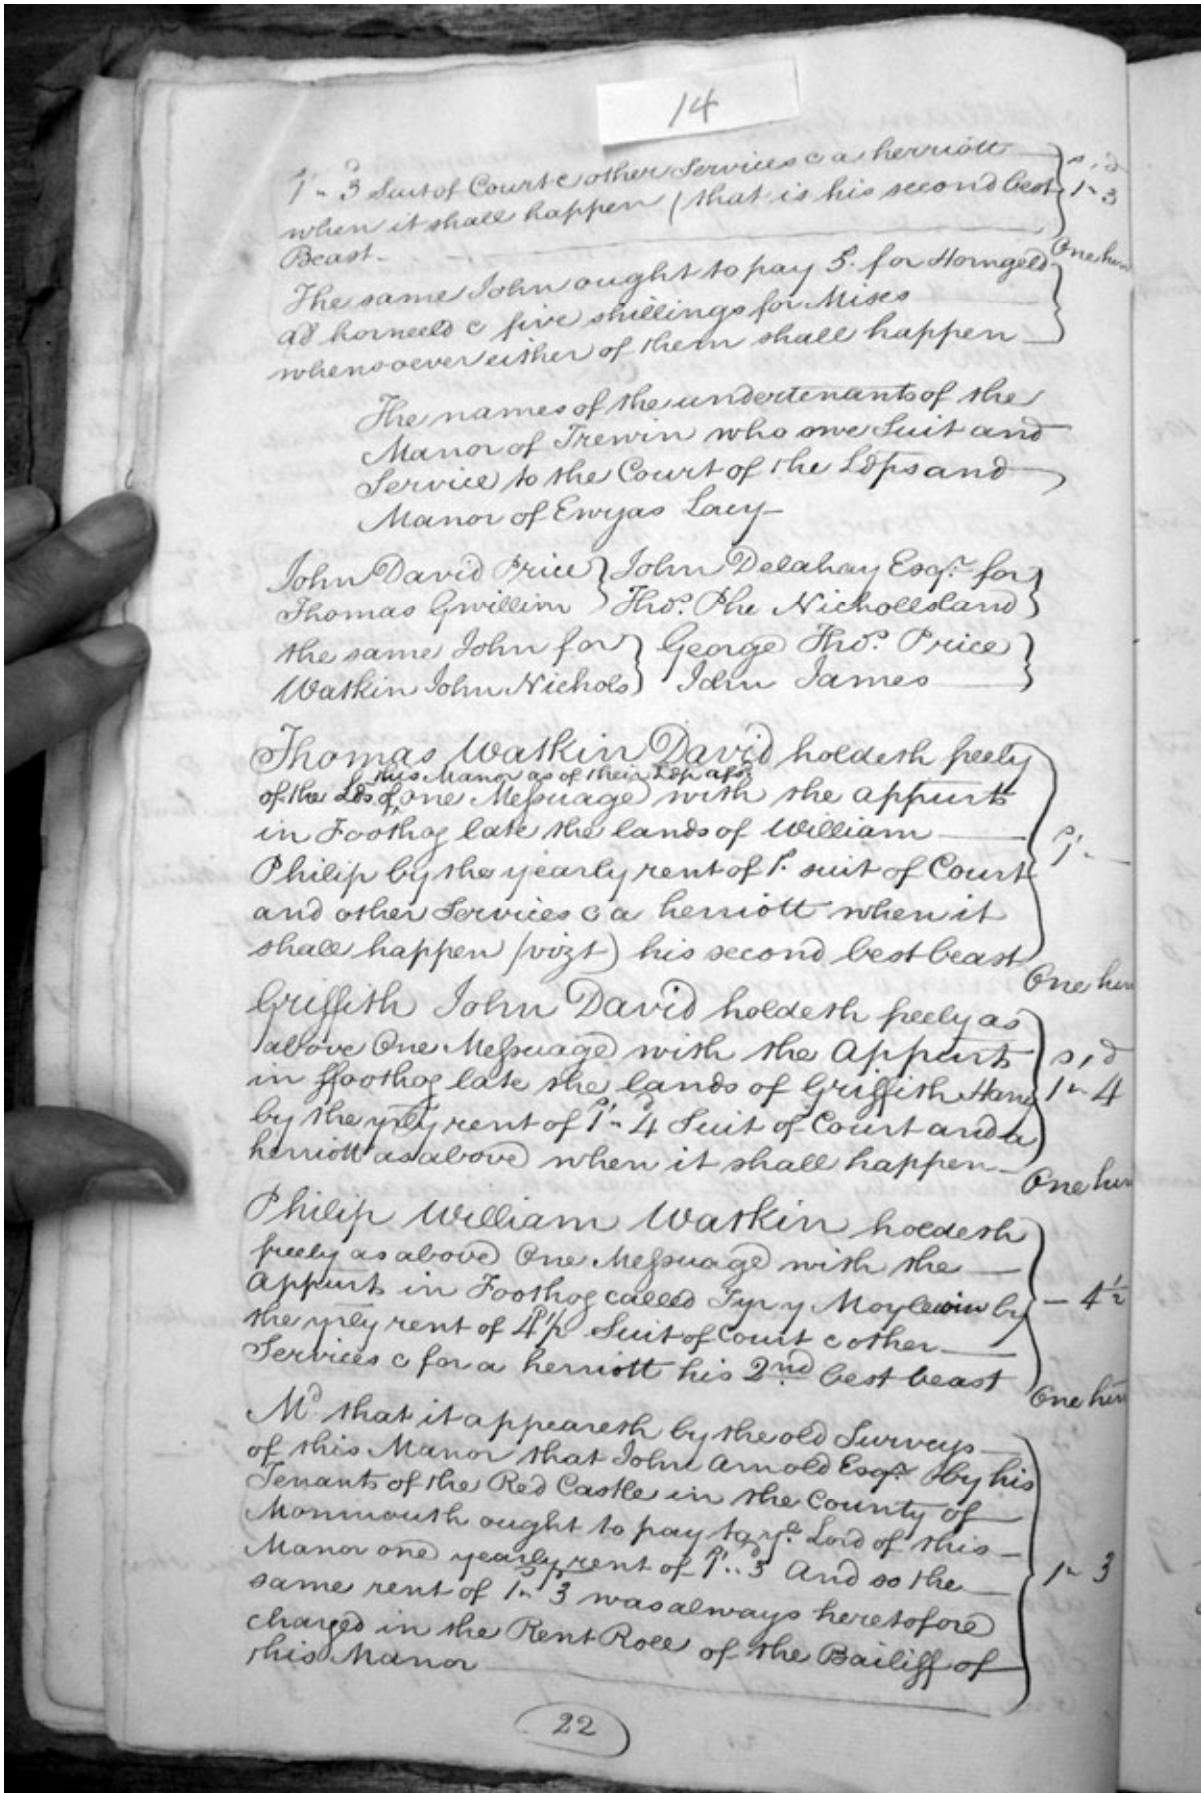 14
1s - 3d Suit of Court & other Services & a herriott
when it shall happen (that is his second best
Beast -
s, d
1 - 3
One her
The same John ought to pay 5s. for Horngeld
ad horneeld & five shillings for Mises
whensoever either of them shall happen
The names of the undertenants of the
Manor of Trewin who owe Suit and
Service to the Court of the Ldps and
Manor of Ewyas Lacy -
John David Price } John Delahay Esqr. for }
Thomas Gwillim } Thos. Phe Nicholls land }
the same John for } George Thos. Price }
Watkin John Nichols } John James }
Thomas Watkin David holdeth freely
this Manor as of their Ldp afsd
of the Lds of one Messuage with the appurts
in Foothog late the lands of William
Philip by the yearly rent of 1s. suit of Court
and other Services & a herriott when it
shall happen (vizt) his second best beast
1s -
One her
Griffith John David holdeth freely as
above One Messuage with the Appurts
in ffoothog late the lands of Griffith
by the yrly rent of 1s - 4d Suit of Court and a
herriott as above when it shall happen
s, d
1 - 4
One her
Philip William Watkin holdeth
freely as above One Messuage with the
Appurts in Foothog called Tyr y Moylewin by
the yrly rent of 4d1/2 Suit of Court & other
Services & for a herriott his 2nd best beast
- 4 1/2
One her
Md that it appeareth by the old Surveys
of this Manor that John Arnold Esqr. by his
Tenants of the Red Castle in the County of
Monmouth ought to pay to ye. Lord of this
Manor one yearly rent of 1s - 3d And so the
same rent of 1s - 3d was always heretofore
charged in the Rent Roll of the Bailiff of
this Manor
1 - 3
22